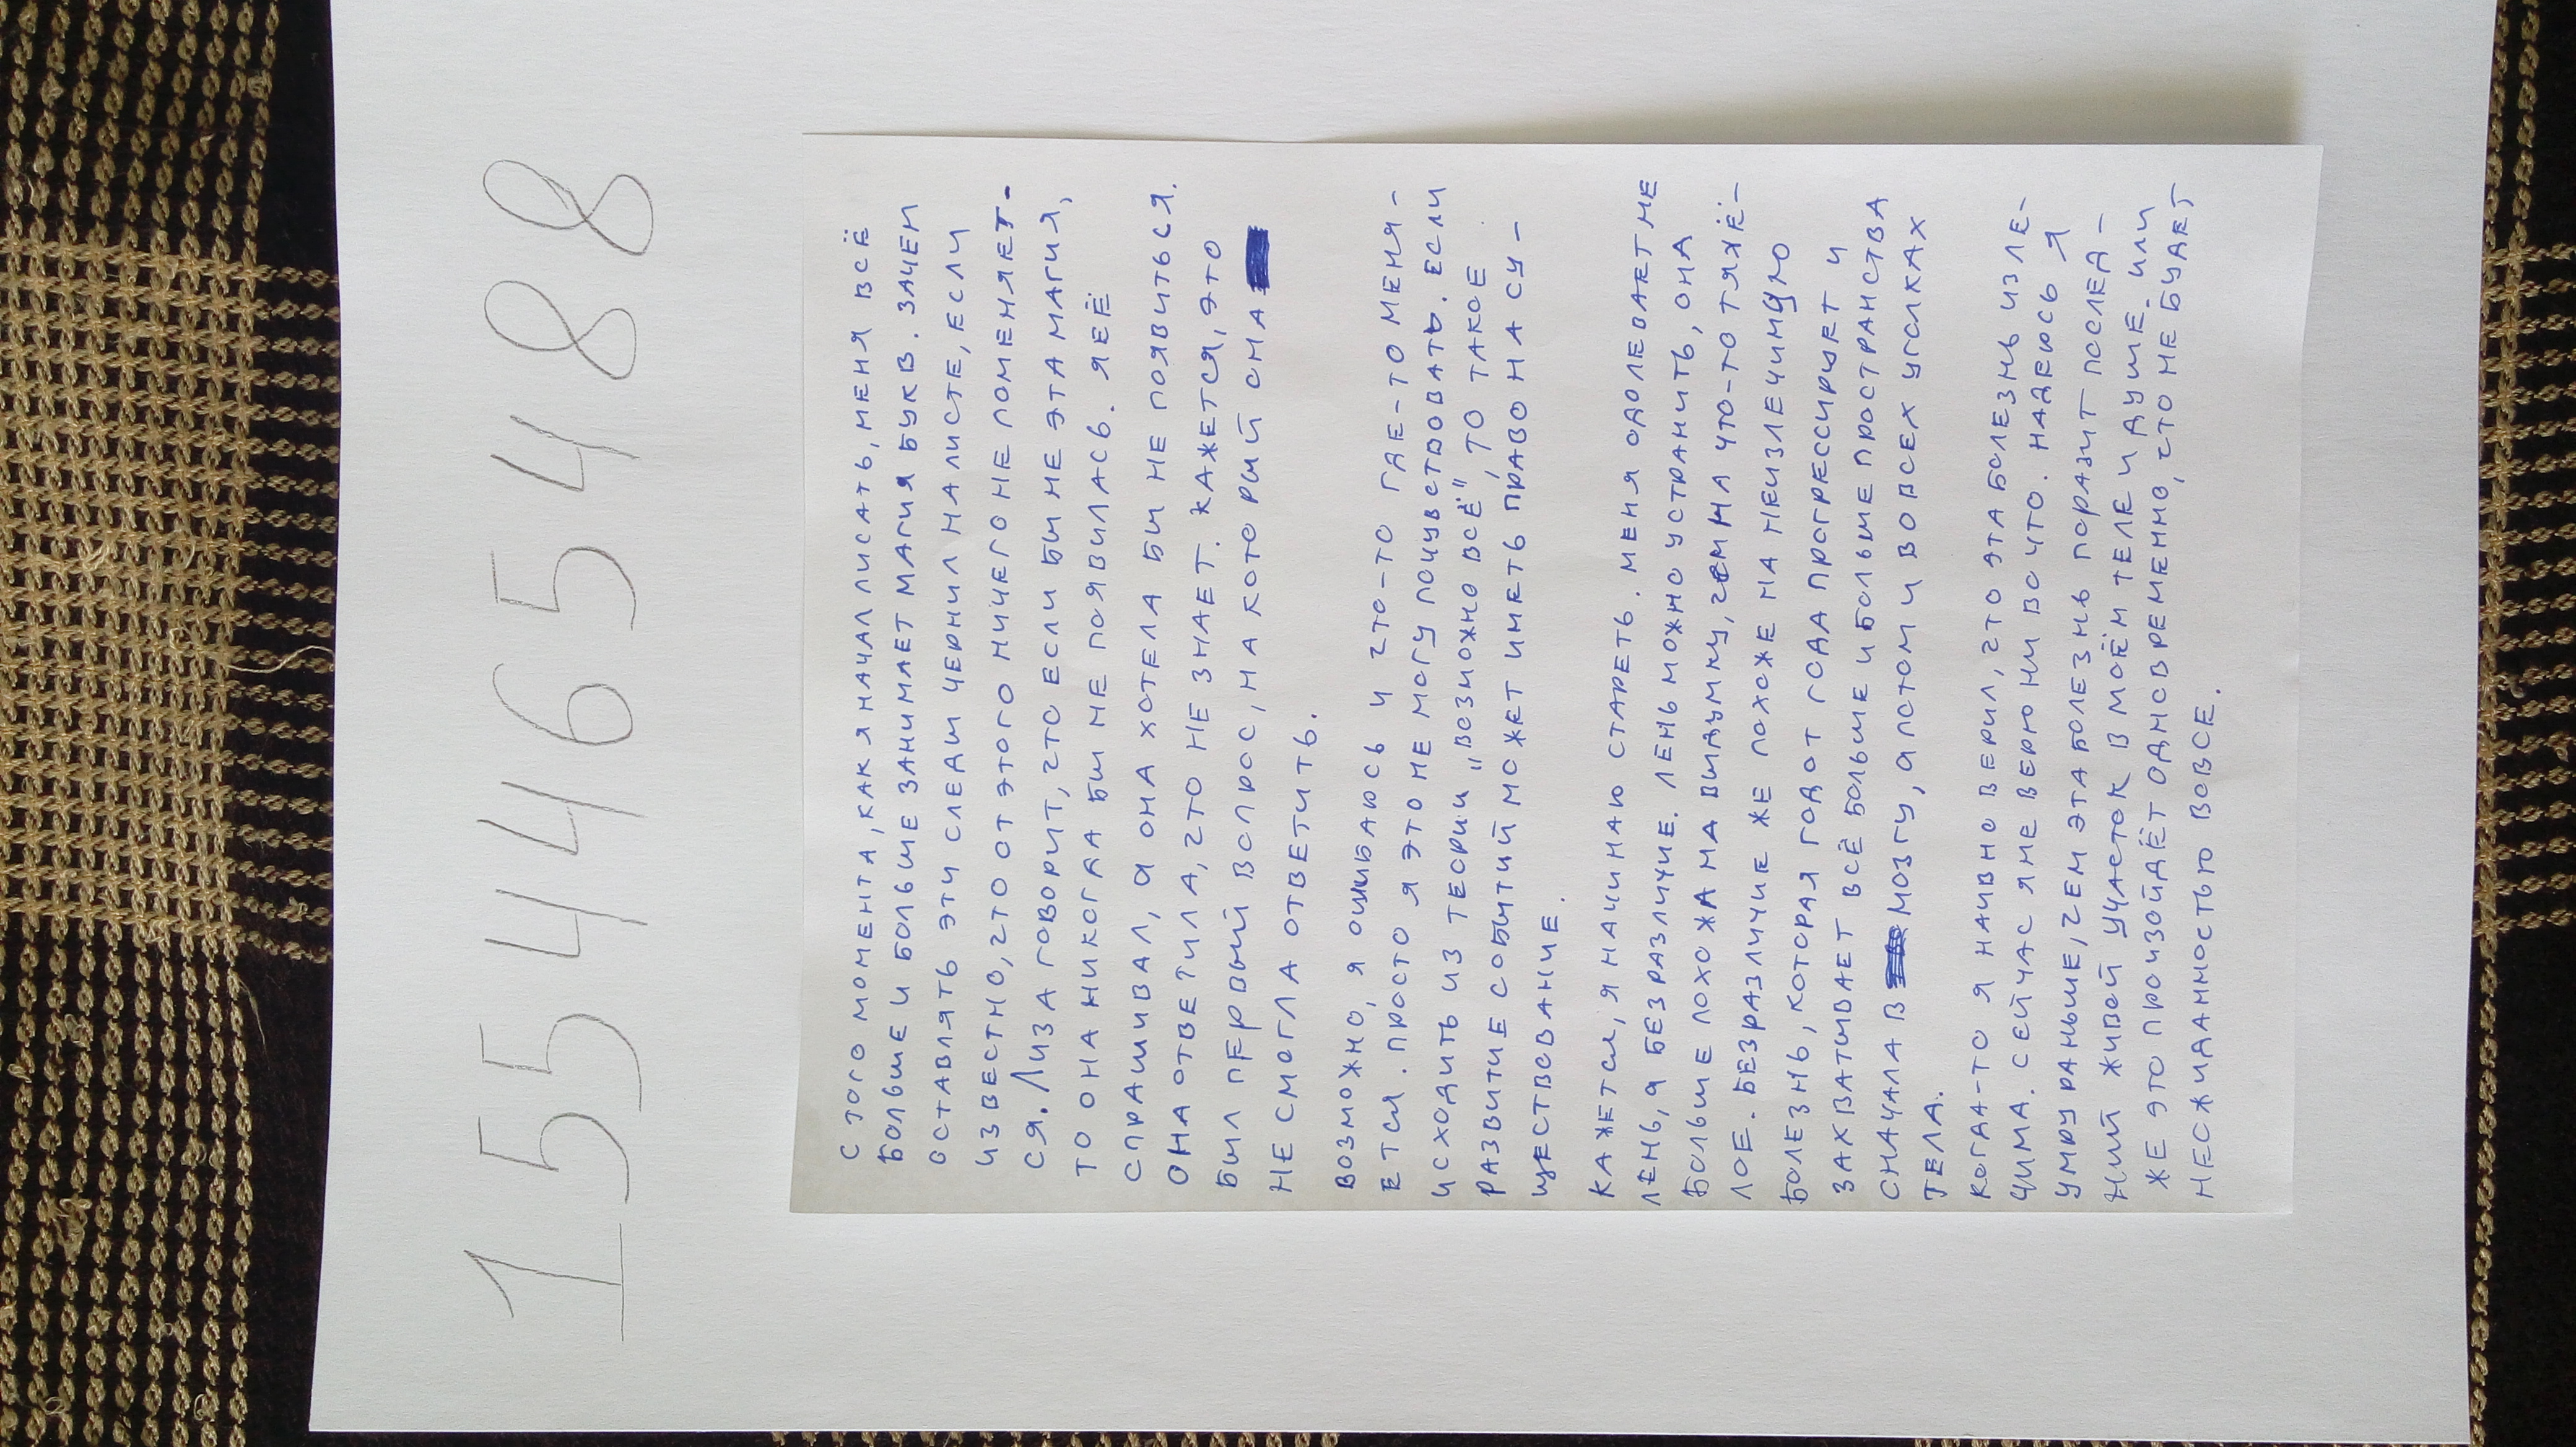 1554465488
С ТОГО МОМЕНТА, КАК Я НАЧАЛ ПИСАТЬ, МЕНЯ ВСЁ
БОЛЬШЕ И БОЛЬШЕ ЗАНИМАЕТ МАГИЯ БУКВ. ЗАЧЕМ
ОСТАВЛЯТЬ ЭТИ СЛЕДЫ ЧЕРНИЛ НА ЛИСТЕ, ЕСЛИ
ИЗВЕСТНО, ЧТО ОТ ЭТОГО НИЧЕГО НЕ ПОМЕНЯЕТ-
СЯ. ЛИЗА ГОВОРИТ, ЧТО ЕСЛИ БЫ НЕ ЭТА МАГИЯ,
ТО ОНА НИКОГДА БЫ НЕ ПОЯВИЛАСЬ. Я ЕЁ
СПРАШИВАЛ, А ОНА ХОТЕЛА БЫ НЕ ПОЯВИТЬСЯ.
ОНА ОТВЕТИЛА, ЧТО НЕ ЗНАЕТ. КАЖЕТСЯ, ЭТО
БЫЛ ПЕРВЫЙ ВОПРОС, НА КОТОРЫЙ ОНА
НЕ СМОГЛА ОТВЕТИТЬ.
ВОЗМОЖНО, Я ОШИБАЮСЬ И ЧТО-ТО ГДЕ-ТО МЕНЯ-
ЕТСЯ. ПРОСТО Я ЭТО НЕ МОГУ ПОЧУВСТВОВАТЬ. ЕСЛИ
ИСХОДИТЬ ИЗ ТЕОРИИ "ВОЗМОЖНО ВСЁ", ТО ТАКОЕ
РАЗВИТИЕ СОБЫТИЙ МОЖЕТ ИМЕТЬ ПРАВО НА СУ-
ЩЕСТВОВАНИЕ.
КАЖЕТСЯ, Я НАЧИНАЮ СТАРЕТЬ. МЕНЯ ОДОЛЕВАЕТ НЕ
ЛЕНЬ, А БЕЗРАЗЛИЧИЕ. ЛЕНЬ МОЖНО УСТРАНИТЬ, ОНА
БОЛЬШЕ ПОХОЖА НА ВЫДУМКУ, ЧЕМ НА ЧТО-ТО ТЯЖЁ-
ЛОЕ. БЕЗРАЗЛИЧИЕ ЖЕ ПОХОЖЕ НА НЕИЗЛЕЧИМУЮ
БОЛЕЗНЬ, КОТОРАЯ ГОД ОТ ГОДА ПРОГРЕССИРУЕТ И
ЗАХВАТЫВАЕТ ВСЁ БОЛЬШЕ И БОЛЬШЕ ПРОСТРАНСТВА
СНАЧАЛА В МОЗГУ, А ПОТОМ И ВО ВСЕХ УГОЛКАХ
ТЕЛА.
КОГДА-ТО Я НАИВНО ВЕРИЛ, ЧТО ЭТА БОЛЕЗНЬ ИЗЛЕ-
ЧИМА. СЕЙЧАС Я НЕ ВЕРЮ НИ ВО ЧТО. НАДЕЮСЬ Я
УМРУ РАНЬШЕ, ЧЕМ ЭТА БОЛЕЗНЬ ПОРАЗИТ ПОСЛЕД-
НИЙ ЖИВОЙ УЧАСТОК В МОЁМ ТЕЛЕ И ДУШЕ. ИЛИ
ЖЕ ЭТО ПРОИЗОЙДЁТ ОДНОВРЕМЕННО, ЧТО НЕ БУДЕТ
НЕОЖИДАННОСТЬЮ ВОВСЕ.